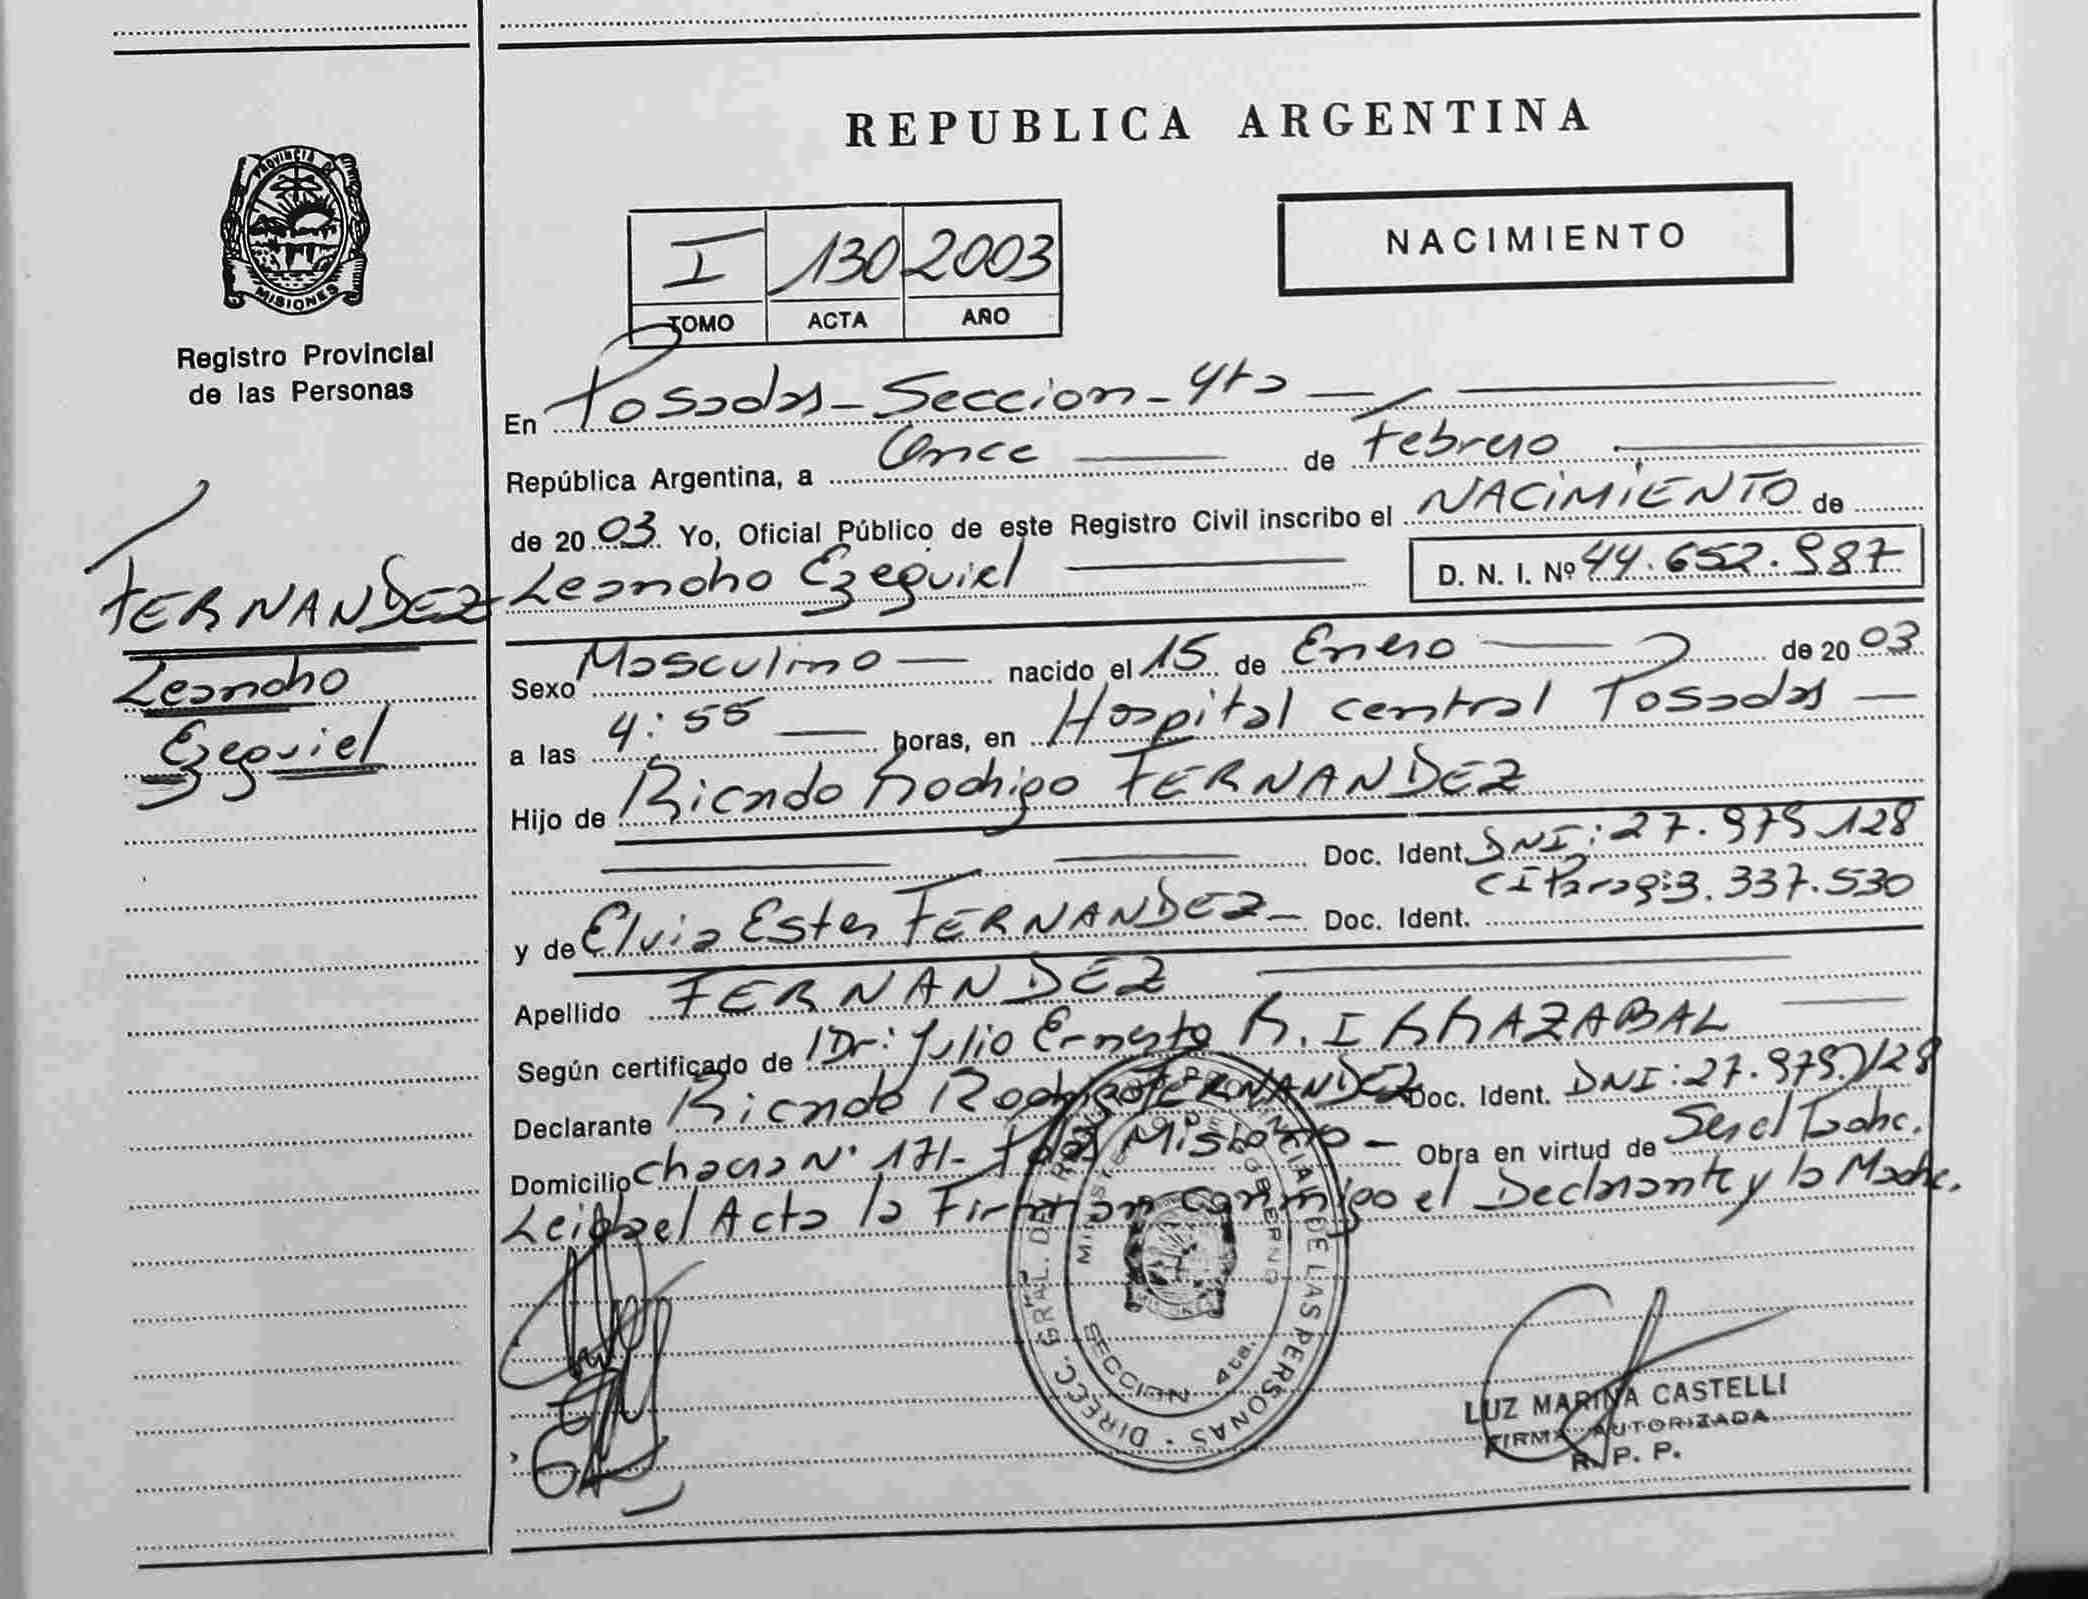 REPUBLICA ARGENTINA
PROVINCIA DE MISIONES
Registro Provincial
de las Personas
NACIMIENTO
I 130 2003
TOMO ACTA AÑO
En Posadas - Seccion - 4ta
República Argentina, a Once de Febrero
de 2003 Yo, Oficial Público de este Registro Civil inscribo el NACIMIENTO de
Leandro Ezequiel D. N. I. Nº 44.652.987
FERNANDEZ
Leandro
Ezequiel
Sexo Masculino nacido el 15 de Enero de 2003
a las 4:55 horas, en Hospital central Posadas
Hijo de Ricardo Rodrigo FERNANDEZ
Doc. Ident. DNI: 27.979.128
y de Elvia Ester FERNANDEZ Doc. Ident. CI Parag: 3.337.530
Apellido FERNANDEZ
Según certificado de Dr: Julio Ernesto R. IRRAZABAL
Declarante Ricardo Rodrigo FERNANDEZ Doc. Ident. DNI: 27.979.128
Domicilio Chacra Nº 171 - Pdas Misiones - Obra en virtud de Ser el Padre.
Leida el Acta la Firman conmigo el Declarante y la Madre.
DIREC. GRAL. DEL REG. PROVINCIAL DE LAS PERSONAS
MINISTERIO DE GOBIERNO
SECCION 4ta.
LUZ MARINA CASTELLI
FIRMA AUTORIZADA
R. P. P.